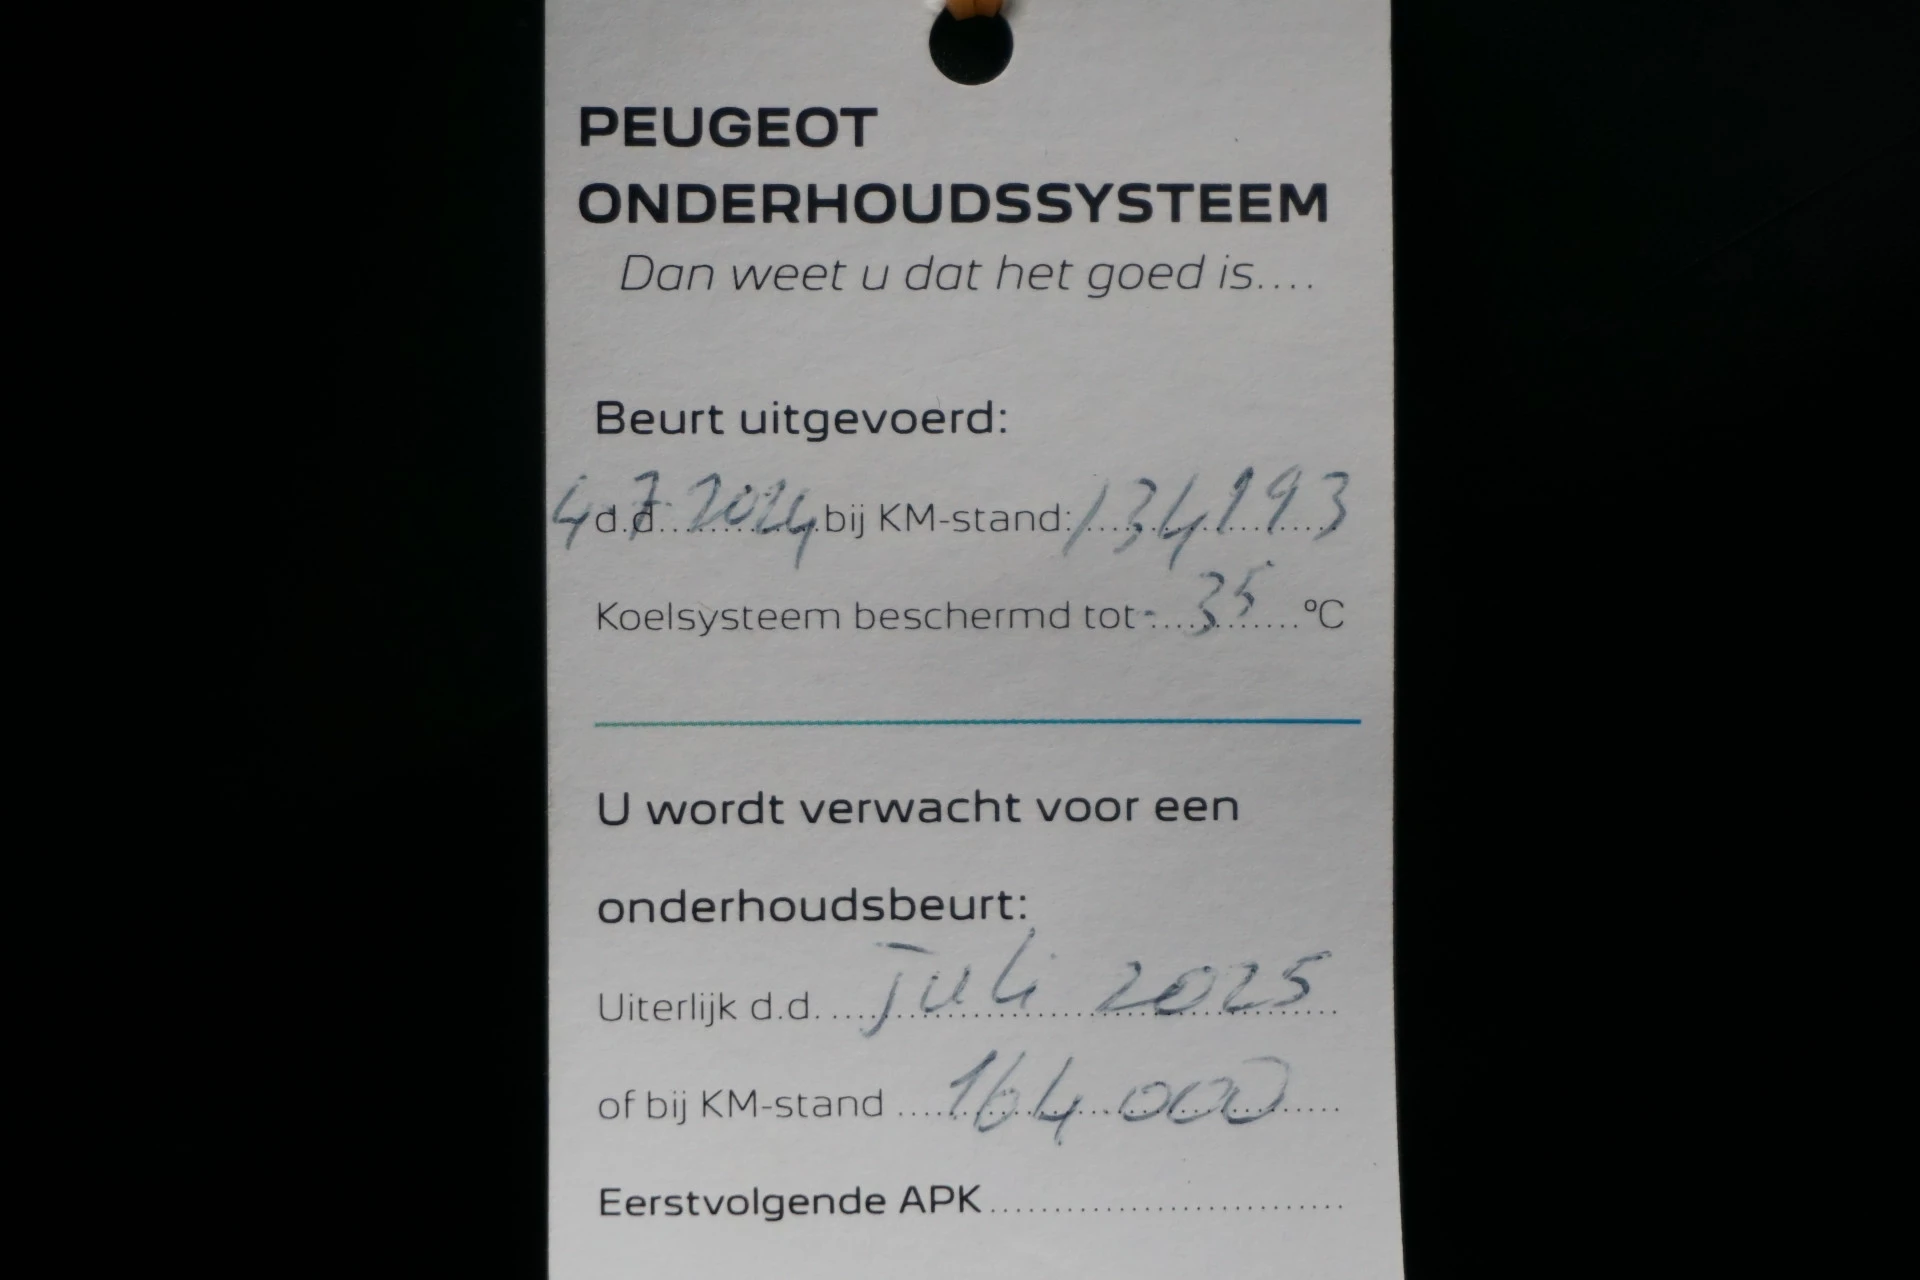 PEUGEOT
ONDERHOUDSSYSTEEM
Dan weet u dat het goed is....
Beurt uitgevoerd:
d.d. 4.7.2024 bij KM-stand: 134193
Koelsysteem beschermd tot - 35 ºC
U wordt verwacht voor een
onderhoudsbeurt:
Uiterlijk d.d. juli 2025
of bij KM-stand 164.000
Eerstvolgende APK